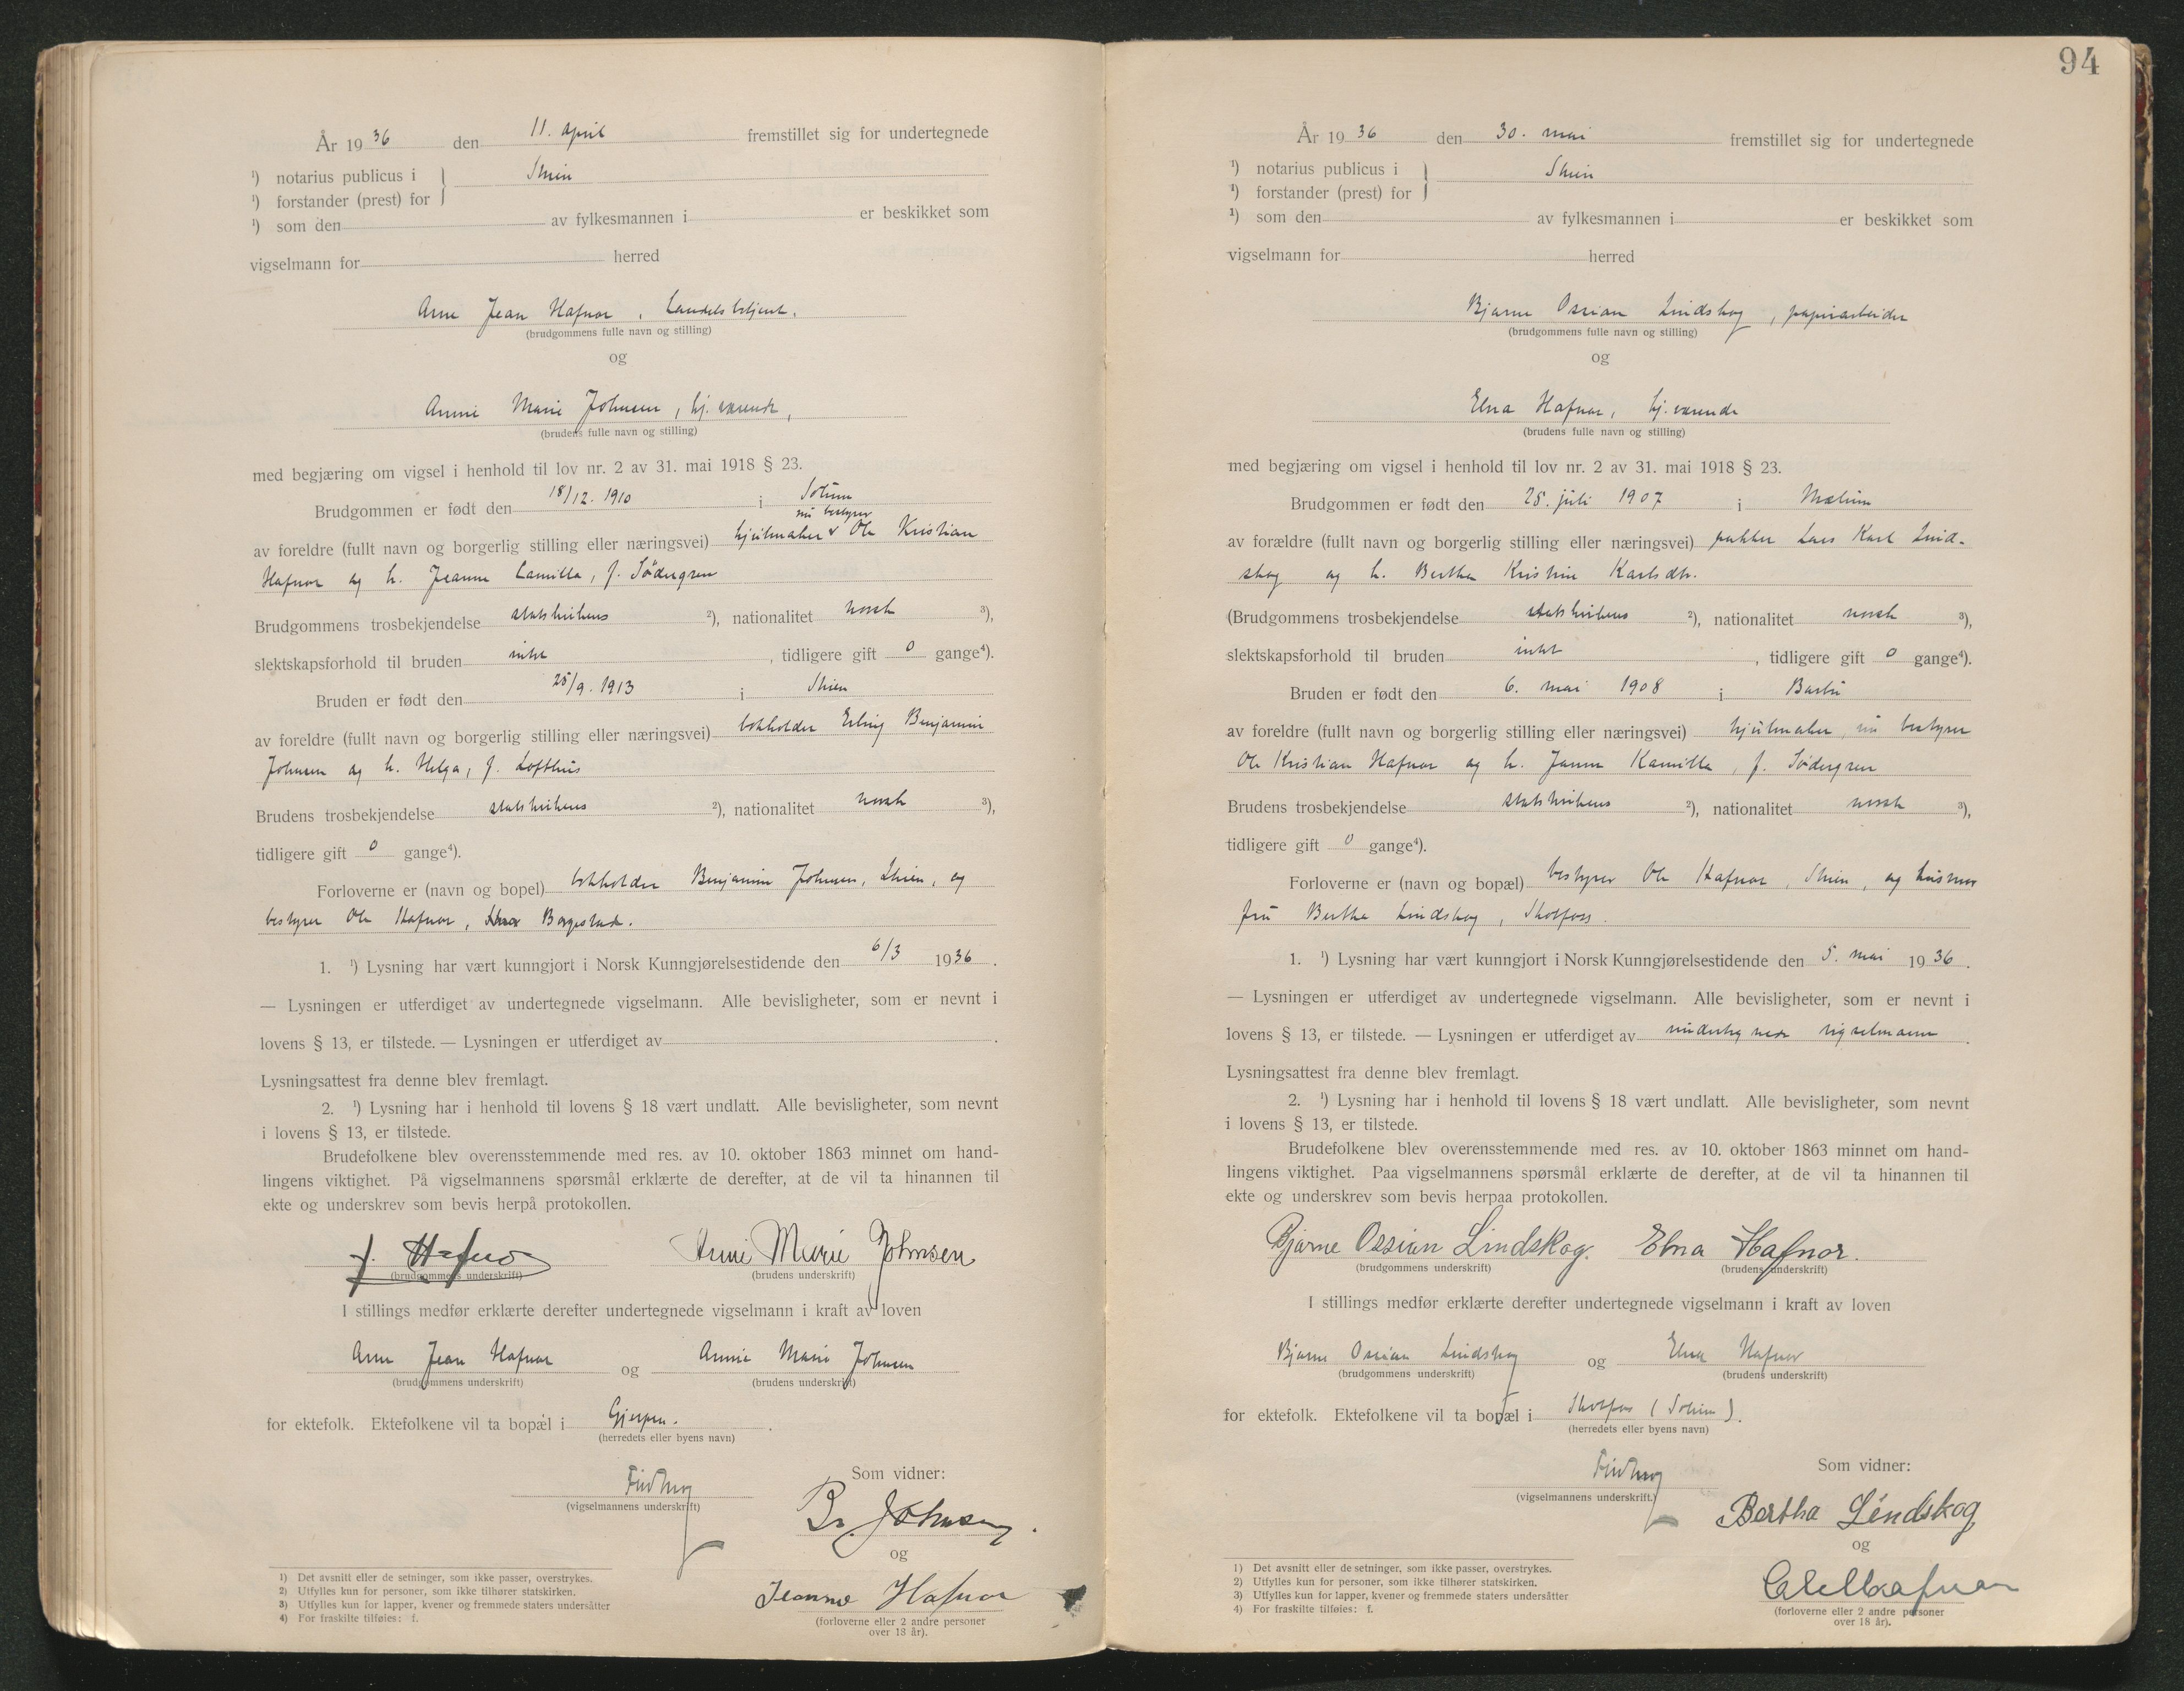 År 19 36 den 11. april fremstillet sig for undertegnede
¹) notarius publicus i } Skien
¹) forstander (prest) for
¹) som den av fylkesmannen i er beskikket som
vigselmann for herred
Arne Jean Hafnor, handelsbetjent.
(brudgommens fulle navn og stilling)
og
Annie Marie Johnsen, hj. værende,
(brudens fulle navn og stilling)
med begjæring om vigsel i henhold til lov nr. 2 av 31. mai 1918 § 23.
Brudgommen er født den 18/12. 1910 i Solum
nu bestyrer
av foreldre (fullt navn og borgerlig stilling eller næringsvei) hjulmaker v Ole Kristian
Hafnor og h. Jeanne Camilla, f. Södergren
Brudgommens trosbekjendelse statskirkens ²), nationalitet norsk ³),
slektskapsforhold til bruden intet, tidligere gift 0 gange⁴).
Bruden er født den 25/9. 1913 i Skien
av foreldre (fullt navn og borgerlig stilling eller næringsvei) bokholder Erling Benjamin
Johnsen og h. Helga, f. Lofthus
Brudens trosbekjendelse statskirkens ²), nationalitet norsk ³),
tidligere gift 0 gange⁴).
Forloverne er (navn og bopel) bokholder Benjamin Johnsen, Skien, og
bestyrer Ole Hafnor, Borgestad.
1. ¹) Lysning har vært kunngjort i Norsk Kunngjørelsestidende den 6/3 1936.
— Lysningen er utferdiget av undertegnede vigselmann. Alle bevisligheter, som er nevnt i
lovens § 13, er tilstede. — Lysningen er utferdiget av .
Lysningsattest fra denne blev fremlagt.
2. ¹) Lysning har i henhold til lovens § 18 vært undlatt. Alle bevisligheter, som nevnt
i lovens § 13, er tilstede.
Brudefolkene blev overensstemmende med res. av 10. oktober 1863 minnet om hand-
lingens viktighet. På vigselmannens spørsmål erklærte de derefter, at de vil ta hinannen til
ekte og underskrev som bevis herpå protokollen.
J. Hafnor Anni Marie Johnsen
(brudgommens underskrift) (brudens underskrift)
I stillings medfør erklærte derefter undertegnede vigselmann i kraft av loven
Arne Jean Hafnor og Annie Marie Johnsen
(brudgommens underskrift) (brudens underskrift)
for ektefolk. Ektefolkene vil ta bopel i Gjerpen.
(herredets eller byens navn)
Som vidner:
(vigselmannens underskrift)
B. Johnsen.
og
Jeanne Hafnor
(forloverne eller 2 andre personer
over 18 år).
1) Det avsnitt eller de setninger, som ikke passer, overstrykes.
2) Utfylles kun for personer, som ikke tilhører statskirken.
3) Utfylles kun for lapper, kvener og fremmede staters undersåtter
4) For fraskilte tilføies: f.
94
År 19 36 den 30. mai fremstillet sig for undertegnede
¹) notarius publicus i } Skien
¹) forstander (prest) for
¹) som den av fylkesmannen i er beskikket som
vigselmann for herred
Bjarne Ossian Lindskog, papirarbeider
(brudgommens fulle navn og stilling)
og
Elna Hafnor, hj. værende
(brudens fulle navn og stilling)
med begjæring om vigsel i henhold til lov nr. 2 av 31. mai 1918 § 23.
Brudgommen er født den 28. juli 1907 i Mælum
av forældre (fullt navn og borgerlig stilling eller næringsvei) pakker Lars Karl Lind-
skog og h. Berthe Kristine Karlsdtr.
(Brudgommens trosbekjendelse statskirkens ²), nationalitet norsk ³),
slektskapsforhold til bruden intet, tidligere gift 0 gange⁴).
Bruden er født den 6. mai 1908 i Barbu
av foreldre (fullt navn og borgerlig stilling eller næringsvei) hjulmaker, nu bestyrer
Ole Kristian Hafnor og h. Janna Kamilla, f. Södergren
Brudens trosbekjendelse statskirkens ²), nationalitet norsk ³),
tidligere gift 0 gange⁴).
Forloverne er (navn og bopæl) bestyrer Ole Hafnor, Skien, og husmor
fru Bertha Lindskog, Skotfoss.
1. ¹) Lysning har vært kunngjort i Norsk Kunngjørelsestidende den 5. mai 1936.
— Lysningen er utferdiget av undertegnede vigselmann. Alle bevisligheter, som er nevnt i
lovens § 13, er tilstede. — Lysningen er utferdiget av undertegnede vigselmann.
Lysningsattest fra denne blev fremlagt.
2. ¹) Lysning har i henhold til lovens § 18 vært undlatt. Alle bevisligheter, som nevnt
i lovens § 13, er tilstede.
Brudefolkene blev overensstemmende med res. av 10. oktober 1863 minnet om hand-
lingens viktighet. Paa vigselmannens spørsmål erklærte de derefter, at de vil ta hinannen til
ekte og underskrev som bevis herpaa protokollen.
Bjarne Ossian Lindskog. Elna Hafnor.
(brudgommens underskrift) (brudens underskrift)
I stillings medfør erklærte derefter undertegnede vigselmann i kraft av loven
Bjarne Ossian Lindskog og Elna Hafnor
(brudgommens underskrift) (brudens underskrift)
for ektefolk. Ektefolkene vil ta bopæl i Skotfoss (Solum).
(herredets eller byens navn)
Som vidner:
(vigselmannens underskrift.)
Bertha Lindskog
og
(forloverne eller 2 andre personer
over 18 år).
1) Det avsnitt eller de setninger, som ikke passer, overstrykes.
2) Utfylles kun for personer, som ikke tilhører statskirken.
3) Utfylles kun for lapper, kvener og fremmede staters undersåtter
4) For fraskilte tilføies: f.